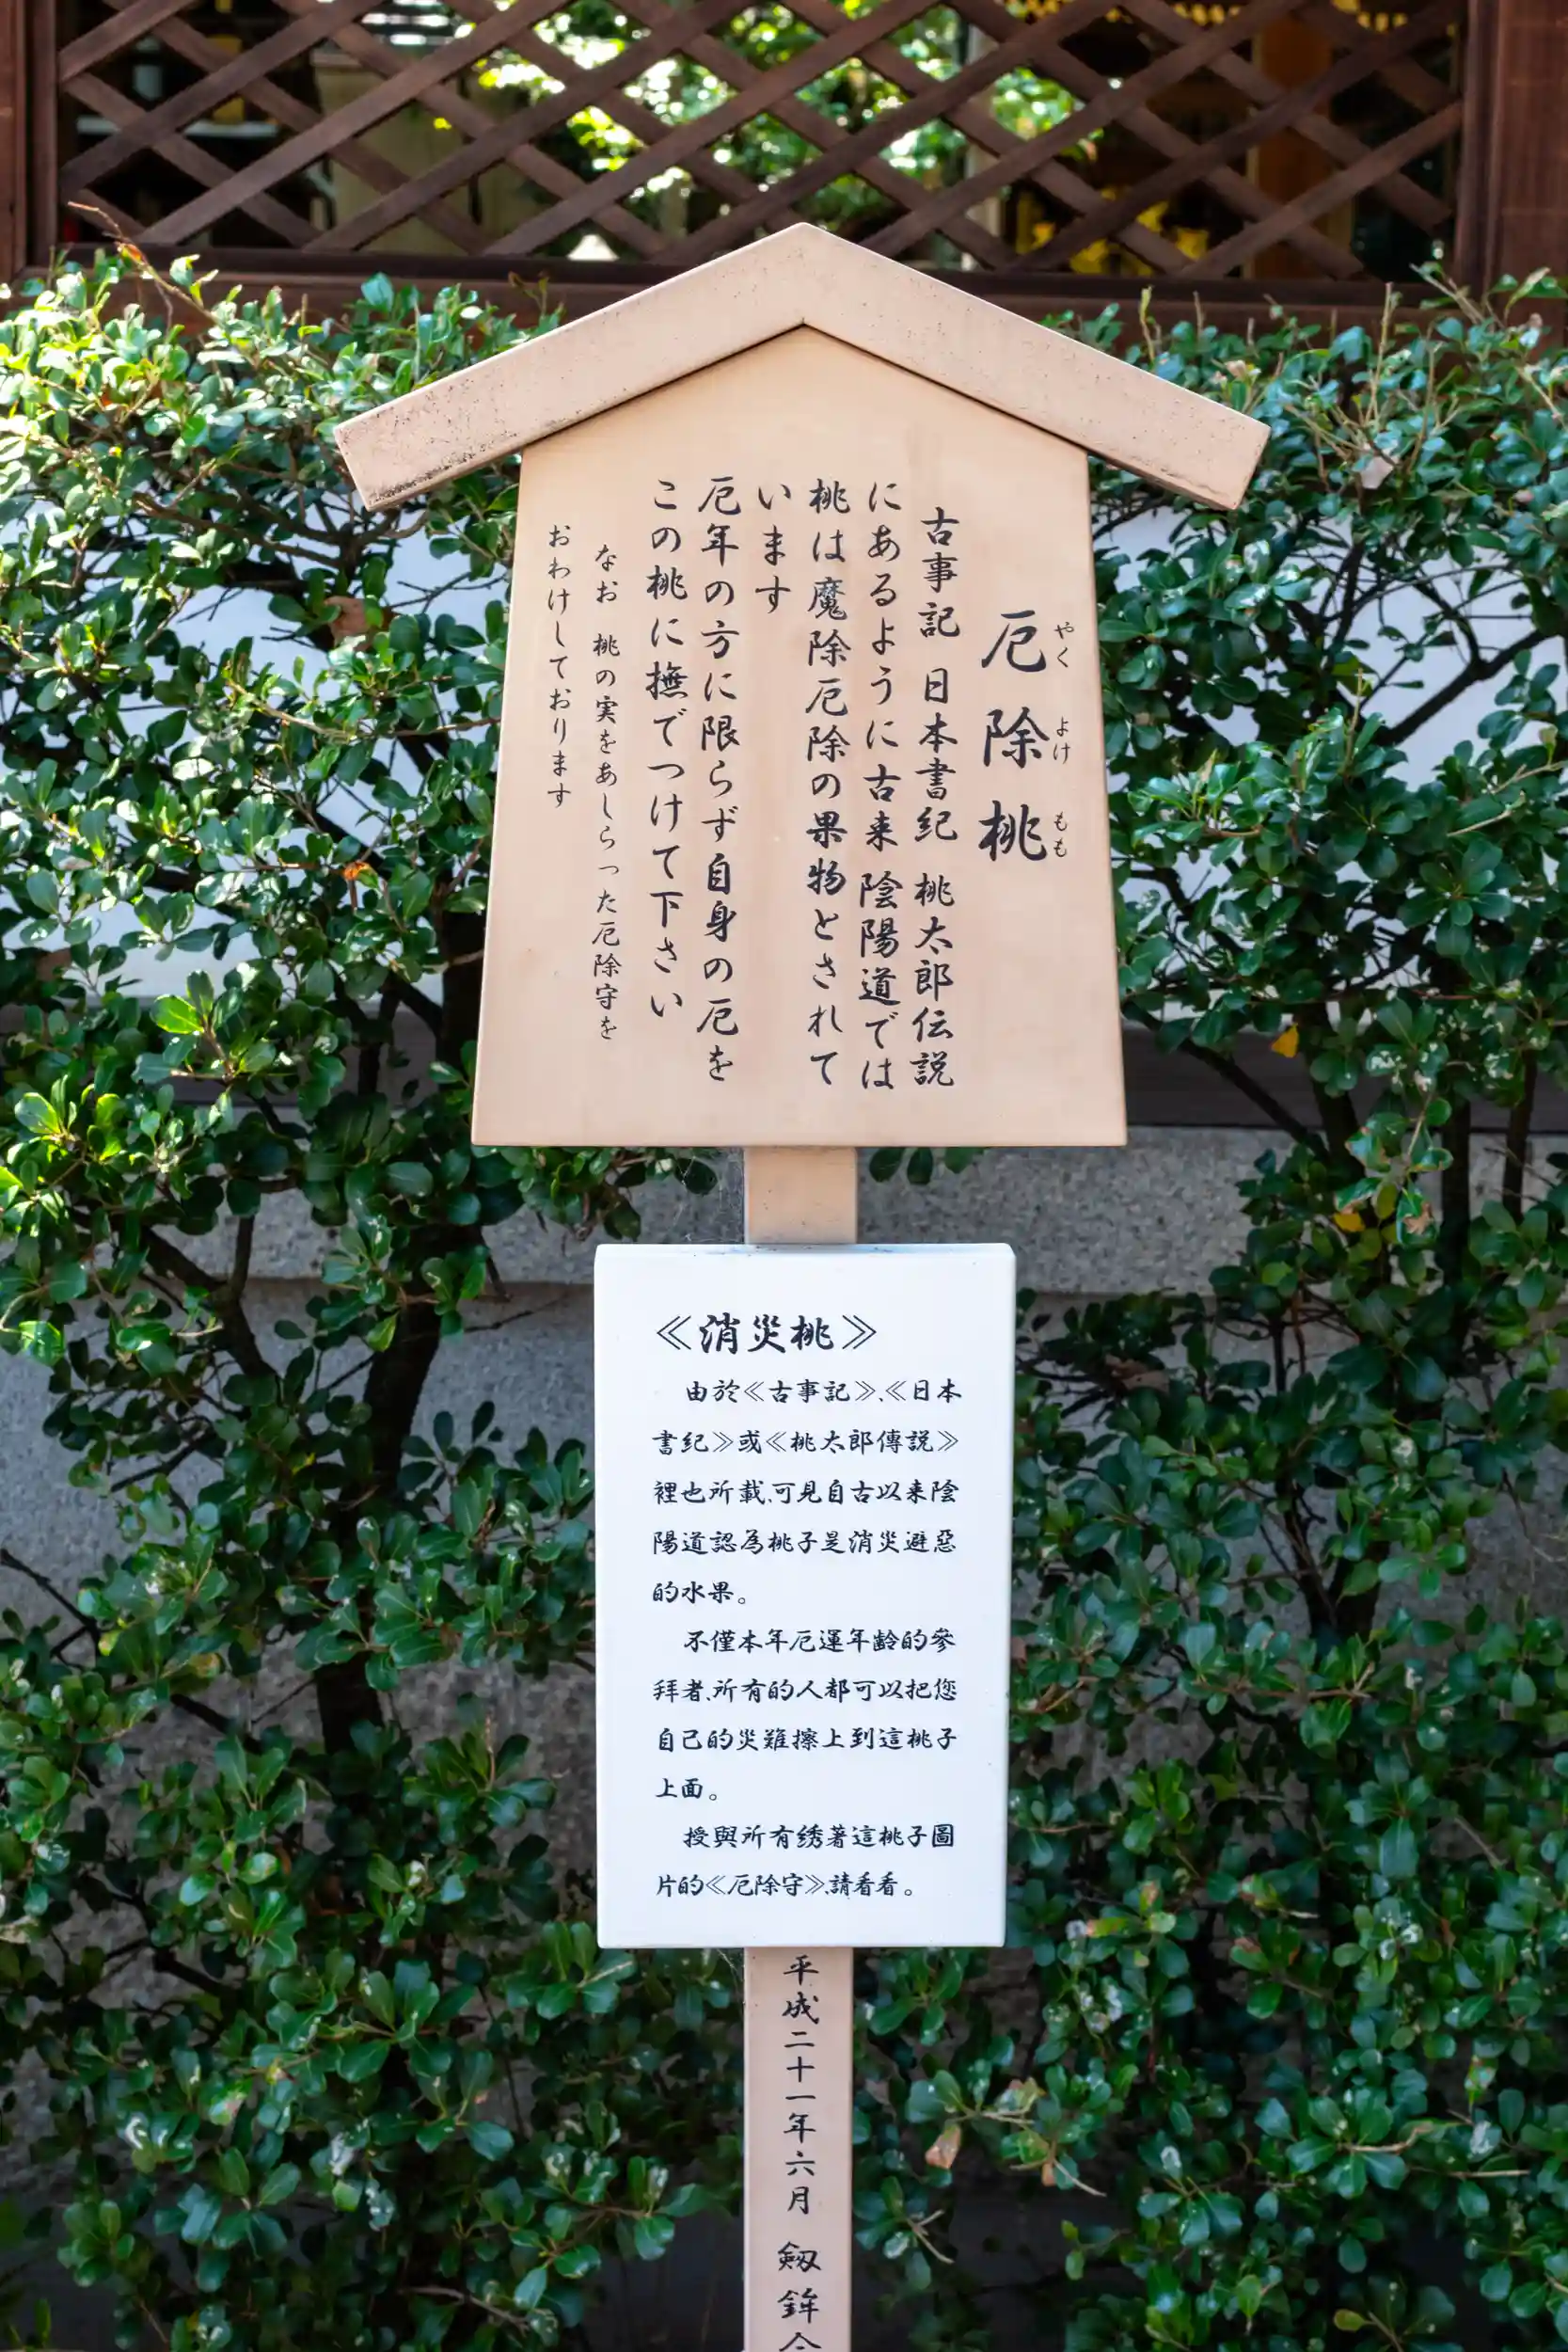 厄除桃
やく よけ もも
古事記 日本書紀 桃太郎伝説
にあるように古来 陰陽道では
桃は魔除厄除の果物とされて
います
厄年の方に限らず自身の厄を
この桃に撫でつけて下さい
なお 桃の実をあしらった厄除守を
おわけしております
≪消災桃≫
由於≪古事記≫、≪日本
書紀≫或≪桃太郎傳説≫
裡也所載、可見自古以来陰
陽道認為桃子是消災避惡
的水果。
不僅本年厄運年齢的參
拜者、所有的人都可以把您
自己的災難擦上到這桃子
上面。
授與所有绣著這桃子圖
片的≪厄除守≫、請看看。
平成二十一年六月 剱鉾